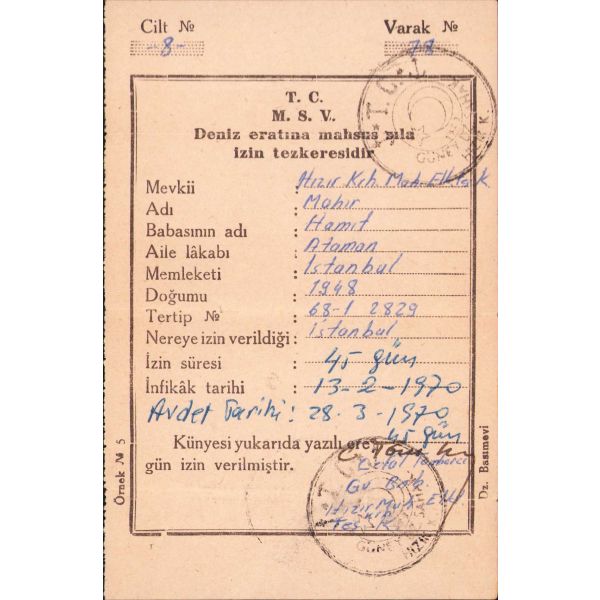 Cilt №
Varak №
-8-
77
T. C.
M. S. V.
Deniz eratına mahsus sıla
izin tezkeresidir
Mevkii : Hızır Krh. Muh.
Adı : Mahir
Babasının adı : Hamit
Aile lâkabı : Ataman
Memleketi : İstanbul
Doğumu : 1948
Tertip № : 68-1 2829
Nereye izin verildiği : istanbul
İzin süresi : 45 gün
İnfikâk tarihi : 13-2-1970
Avdet Tarihi : 28.3-1970
45 gün
Künyesi yukarıda yazılı ere
gün izin verilmiştir.
Gv.
Hızır Muh.
Örnek № 5
Dz. Basımevi
T. C.
GÜNEY
T. C.
GÜNEY